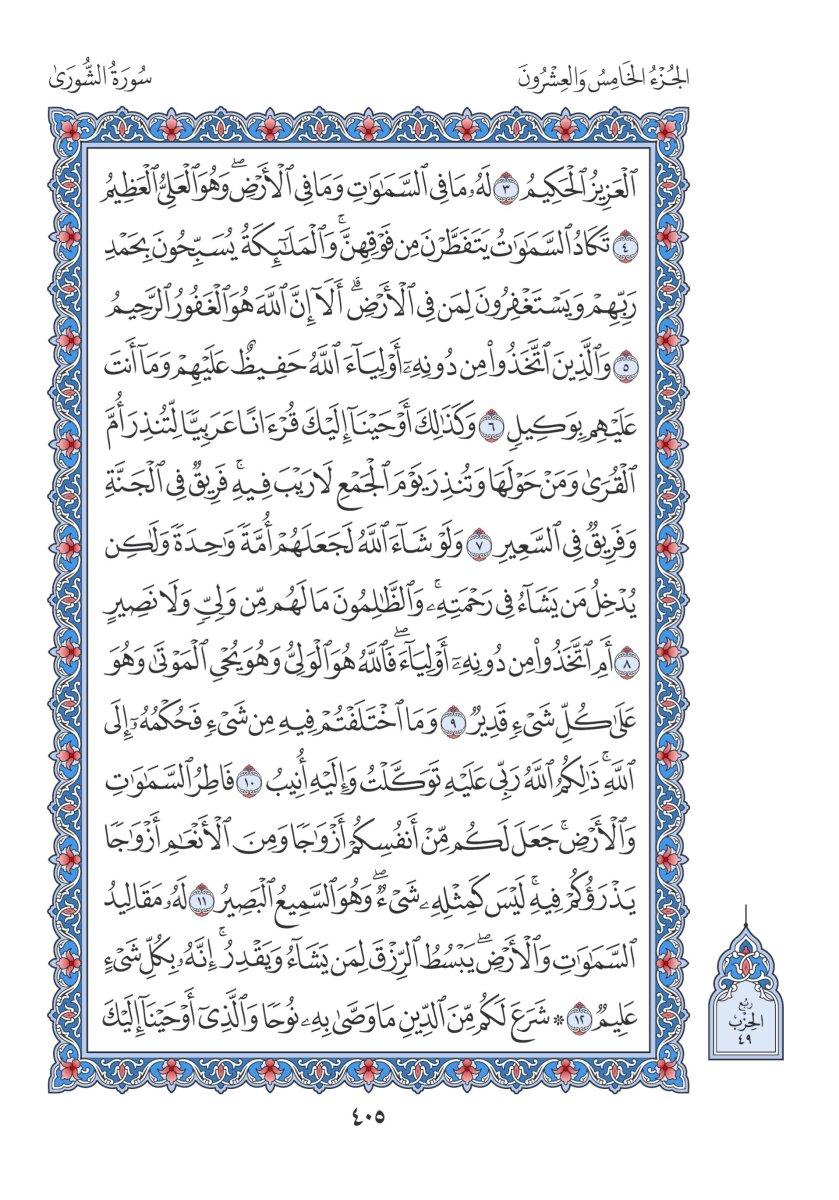 الجُزْءُ الخَامِسُ وَالعِشْرُونَ
سُورَةُ الشُّورَىٰ
ٱلْعَزِيزُ ٱلْحَكِيمُ ٣ لَهُۥ مَا فِى ٱلسَّمَٰوَٰتِ وَمَا فِى ٱلْأَرْضِۖ وَهُوَ ٱلْعَلِىُّ ٱلْعَظِيمُ
٤ تَكَادُ ٱلسَّمَٰوَٰتُ يَتَفَطَّرْنَ مِن فَوْقِهِنَّۚ وَٱلْمَلَٰٓئِكَةُ يُسَبِّحُونَ بِحَمْدِ
رَبِّهِمْ وَيَسْتَغْفِرُونَ لِمَن فِى ٱلْأَرْضِۗ أَلَآ إِنَّ ٱللَّهَ هُوَ ٱلْغَفُورُ ٱلرَّحِيمُ
٥ وَٱلَّذِينَ ٱتَّخَذُوا۟ مِن دُونِهِۦٓ أَوْلِيَآءَ ٱللَّهُ حَفِيظٌ عَلَيْهِمْ وَمَآ أَنتَ
عَلَيْهِم بِوَكِيلٍ ٦ وَكَذَٰلِكَ أَوْحَيْنَآ إِلَيْكَ قُرْءَانًا عَرَبِيًّا لِّتُنذِرَ أُمَّ
ٱلْقُرَىٰ وَمَنْ حَوْلَهَا وَتُنذِرَ يَوْمَ ٱلْجَمْعِ لَا رَيْبَ فِيهِۚ فَرِيقٌ فِى ٱلْجَنَّةِ
وَفَرِيقٌ فِى ٱلسَّعِيرِ ٧ وَلَوْ شَآءَ ٱللَّهُ لَجَعَلَهُمْ أُمَّةً وَٰحِدَةً وَلَٰكِن
يُدْخِلُ مَن يَشَآءُ فِى رَحْمَتِهِۦۚ وَٱلظَّٰلِمُونَ مَا لَهُم مِّن وَلِىٍّ وَلَا نَصِيرٍ
٨ أَمِ ٱتَّخَذُوا۟ مِن دُونِهِۦٓ أَوْلِيَآءَۖ فَٱللَّهُ هُوَ ٱلْوَلِىُّ وَهُوَ يُحْىِ ٱلْمَوْتَىٰ وَهُوَ
عَلَىٰ كُلِّ شَىْءٍ قَدِيرٌ ٩ وَمَا ٱخْتَلَفْتُمْ فِيهِ مِن شَىْءٍ فَحُكْمُهُۥٓ إِلَى
ٱللَّهِۚ ذَٰلِكُمُ ٱللَّهُ رَبِّى عَلَيْهِ تَوَكَّلْتُ وَإِلَيْهِ أُنِيبُ ١٠ فَاطِرُ ٱلسَّمَٰوَٰتِ
وَٱلْأَرْضِۚ جَعَلَ لَكُم مِّنْ أَنفُسِكُمْ أَزْوَٰجًا وَمِنَ ٱلْأَنْعَٰمِ أَزْوَٰجًا
يَذْرَؤُكُمْ فِيهِۚ لَيْسَ كَمِثْلِهِۦ شَىْءٌۖ وَهُوَ ٱلسَّمِيعُ ٱلْبَصِيرُ ١١ لَهُۥ مَقَالِيدُ
ٱلسَّمَٰوَٰتِ وَٱلْأَرْضِۖ يَبْسُطُ ٱلرِّزْقَ لِمَن يَشَآءُ وَيَقْدِرُۚ إِنَّهُۥ بِكُلِّ شَىْءٍ
عَلِيمٌ ١٢ ۞ شَرَعَ لَكُم مِّنَ ٱلدِّينِ مَا وَصَّىٰ بِهِۦ نُوحًا وَٱلَّذِىٓ أَوْحَيْنَآ إِلَيْكَ
رُبْع
الحِزْب
٤٩
٤٠٥